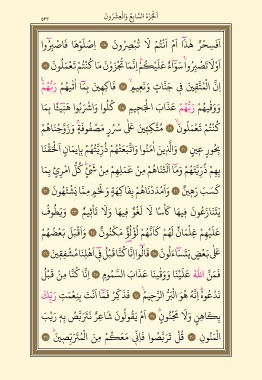 ٥٢٣
اَلْجُزْءُ السَّابِعُ وَالْعِشْرُونَ
اَفَسِحْرٌ هٰذَٓا اَمْ اَنْتُمْ لَا تُبْصِرُونَ ۞ اِصْلَوْهَا فَاصْبِرُٓوا
اَوْ لَا تَصْبِرُوا سَوَٓاءٌ عَلَيْكُمْ اِنَّمَا تُجْزَوْنَ مَا كُنْتُمْ تَعْمَلُونَ ۞
اِنَّ الْمُتَّقٖينَ فٖي جَنَّاتٍ وَنَعٖيمٍ ۞ فَاكِهٖينَ بِمَٓا اٰتٰيهُمْ رَبُّهُمْ
وَوَقٰيهُمْ رَبُّهُمْ عَذَابَ الْجَحٖيمِ ۞ كُلُوا وَاشْرَبُوا هَنٖٓيـًٔا بِمَا
كُنْتُمْ تَعْمَلُونَ ۞ مُتَّكِـٖٔينَ عَلٰى سُرُرٍ مَصْفُوفَةٍ وَزَوَّجْنَاهُمْ
بِحُورٍ عٖينٍ ۞ وَالَّذٖينَ اٰمَنُوا وَاتَّبَعَتْهُمْ ذُرِّيَّتُهُمْ بِاٖيمَانٍ اَلْحَقْنَا
بِهِمْ ذُرِّيَّتَهُمْ وَمَٓا اَلَتْنَاهُمْ مِنْ عَمَلِهِمْ مِنْ شَيْءٍ كُلُّ امْرِئٍ بِمَا
كَسَبَ رَهٖينٌ ۞ وَاَمْدَدْنَاهُمْ بِفَاكِهَةٍ وَلَحْمٍ مِمَّا يَشْتَهُونَ ۞
يَتَنَازَعُونَ فٖيهَا كَأْسًا لَا لَغْوٌ فٖيهَا وَلَا تَأْثٖيمٌ ۞ وَيَطُوفُ
عَلَيْهِمْ غِلْمَانٌ لَهُمْ كَاَنَّهُمْ لُؤْلُؤٌ مَكْنُونٌ ۞ وَاَقْبَلَ بَعْضُهُمْ
عَلٰى بَعْضٍ يَتَسَٓاءَلُونَ ۞ قَالُٓوا اِنَّا كُنَّا قَبْلُ فٖٓي اَهْلِنَا مُشْفِقٖينَ ۞
فَمَنَّ اللّٰهُ عَلَيْنَا وَوَقٰينَا عَذَابَ السَّمُومِ ۞ اِنَّا كُنَّا مِنْ قَبْلُ
نَدْعُوهُ اِنَّهُ هُوَ الْبَرُّ الرَّحٖيمُ ۞ فَذَكِّرْ فَمَٓا اَنْتَ بِنِعْمَتِ رَبِّكَ
بِكَاهِنٍ وَلَا مَجْنُونٍ ۞ اَمْ يَقُولُونَ شَاعِرٌ نَتَرَبَّصُ بِهٖ رَيْبَ
الْمَنُونِ ۞ قُلْ تَرَبَّصُوا فَاِنّٖي مَعَكُمْ مِنَ الْمُتَرَبِّصٖينَ ۞